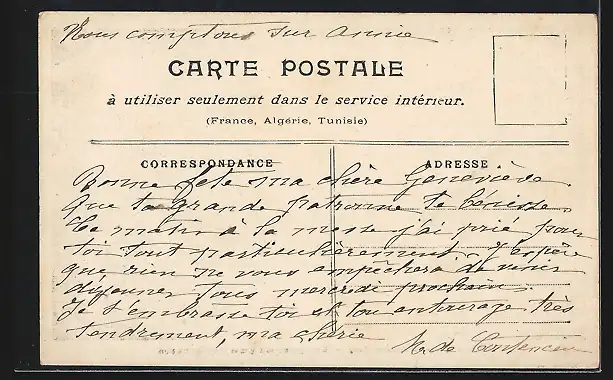 Nous comptons sur Annie
CARTE POSTALE
à utiliser seulement dans le service intérieur.
(France, Algérie, Tunisie)
CORRESPONDANCE
ADRESSE
Bonne fête ma chère Geneviève.
Que ta grande patronne te bénisse.
Ce matin à la messe j'ai prié pour
toi tout particulièrement. J'espère
que rien ne vous empêchera de venir
déjeuner tous mercredi prochain.
Je t'embrasse toi et ton entourage très
tendrement, ma chérie
de